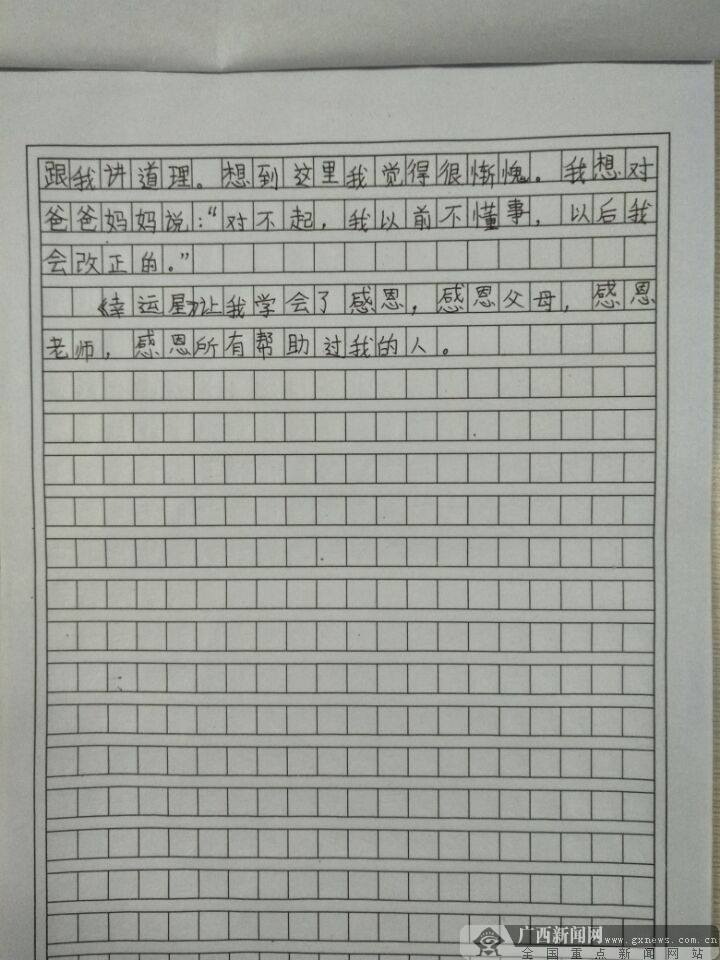 跟我讲道理。想到这里我觉得很惭愧。我想对
爸爸妈妈说：“对不起，我以前不懂事，以后我
会改正的。”
《幸运星》让我学会了感恩，感恩父母，感恩
老师，感恩所有帮助过我的人。
广西新闻网
www.gxnews.com.cn
全国重点新闻网站